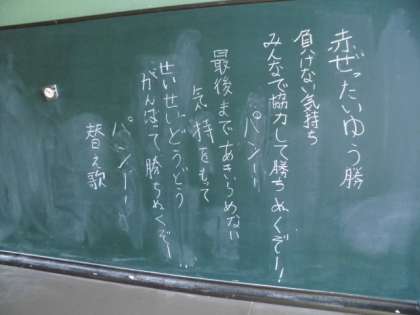 赤ぜったいゆう勝
負けない気持ち
みんなで協力して勝ちぬくぞー!!
パンー!!
最後まであきらめない
気持をもって
せいせいどうどう
がんばって勝ちぬくぞー!!
パンー!!
替え歌